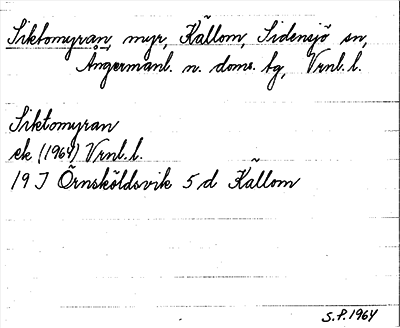 Siktomyran, myr, Källom, Sidensjö sn,
Ångermanl. n. doms. tg, Vrnl. l.
Siktomyran
ek (1964) Vrnl. l.
19 J Örnsköldsvik 5 d Källom
S.P. 1964